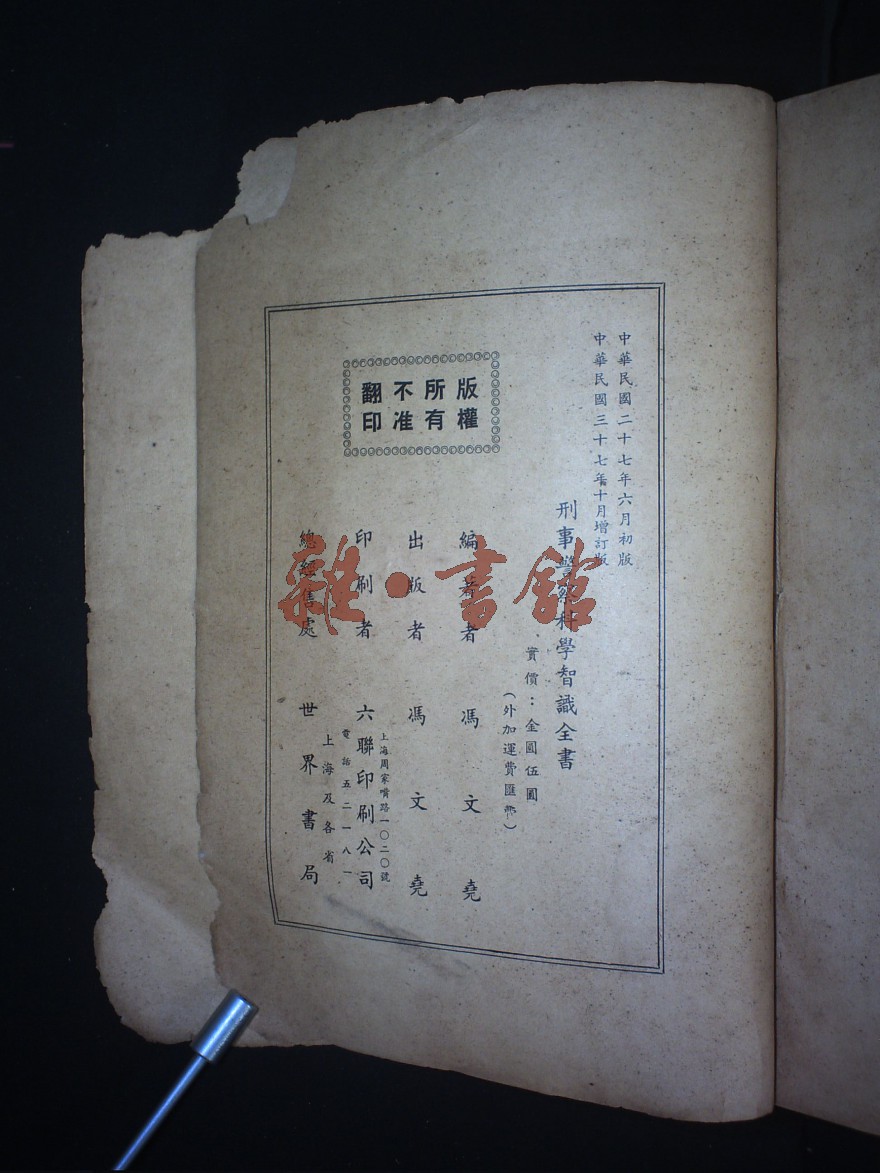 中華民國二十七年六月初版
中華民國三十七年十月增訂版
刑事警察科學智識全書
實價：金圓伍圓
（外加運費匯郵）
版權所有
不准翻印
編著者　馮文堯
出版者　馮文堯
上海周家嘴路一〇二〇號
印刷者　六聯印刷公司
電話五二一八一
上海及各省
總經售處　世界書局
雜·書館